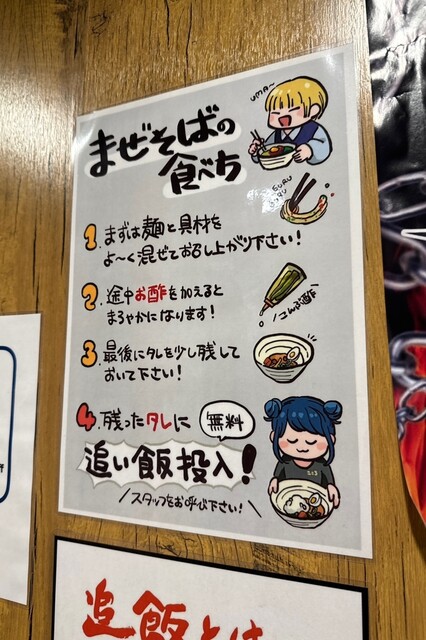 まぜそばの
食べち
UMA~
SURU
SURU
1. まずは麺と具材を
よ〜く混ぜてお召し上がり下さい!
2. 途中お酢を加えると
まろやかになります!
こんぶ酢
3. 最後にタレを少し残して
おいて下さい!
4. 残ったタレに
無料
追い飯投入!
スタッフをお呼び下さい!
追飯とは